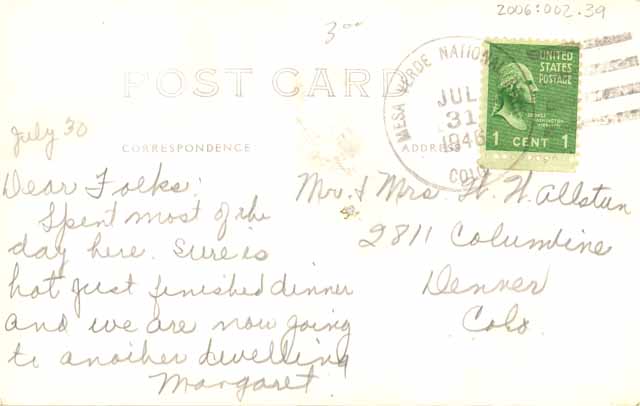 2006:002.39
3⁰⁰
POST CARD
MESA VERDE NATIONAL
JUL
31
1946
COLO
UNITED
STATES
POSTAGE
GEORGE
WASHINGTON
1 CENT 1
July 30
CORRESPONDENCE
ADDRESS
Dear Folks:
Spent most of the
day here. Sure is
hot just finished dinner
and we are now going
to another dwelling
Margaret.
Mr. & Mrs. H. H. Allstun
2811 Columbine
Denver
Colo.